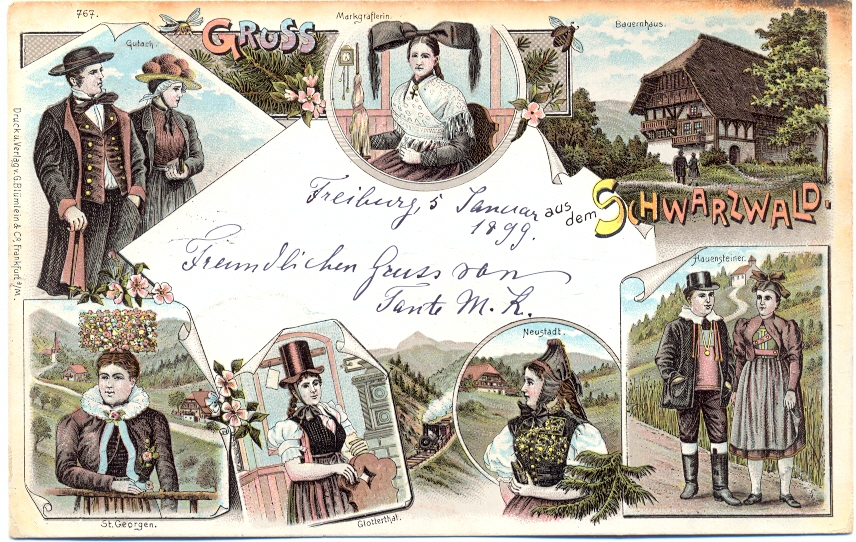 767.
Gutach.
GRUSS
Markgräflerin.
Bauernhaus.
aus
dem
SCHWARZWALD.
Druck u. Verlag v. G. Blümlein & Co., Frankfurt a/M.
Freiburg, 5 Januar
1899.
Freundlichen Gruss von
Tante M. K.
Hauensteiner.
St. Georgen.
Glotterthal.
Neustadt.